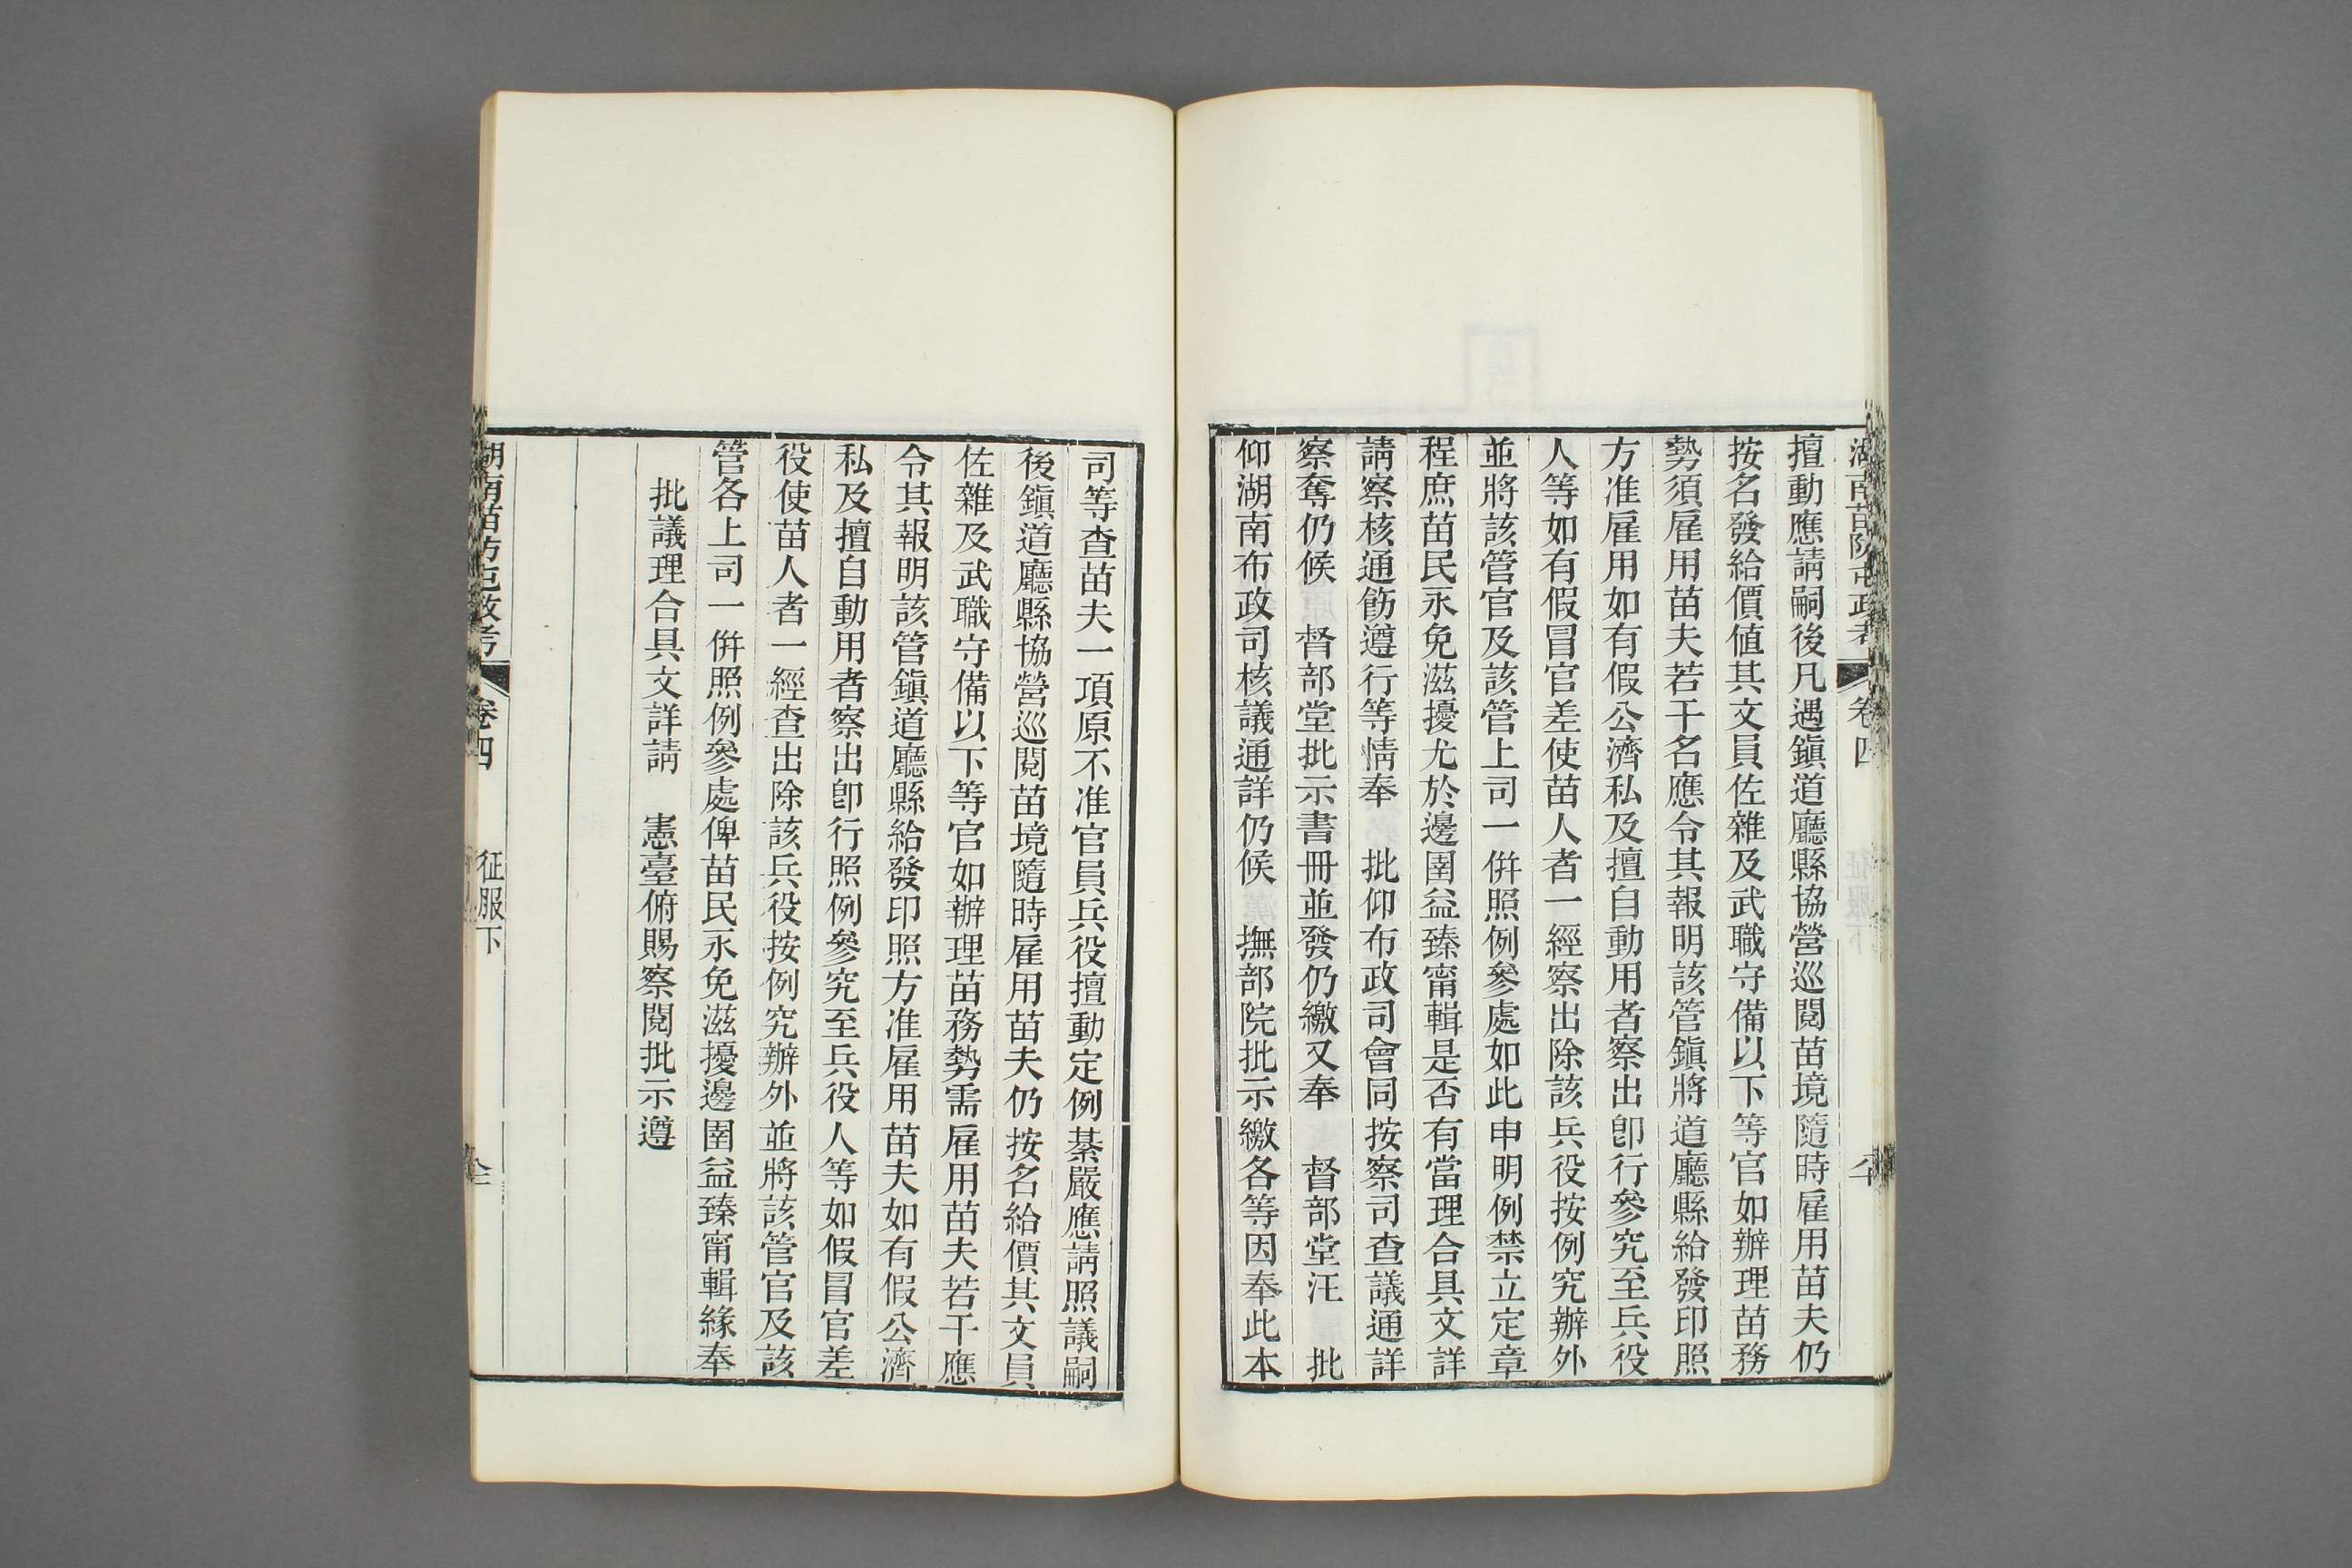 湖南苗防屯政考 卷四
擅動應請嗣後凡遇鎭道廳縣協營巡閱苗境隨時雇用苗夫仍
按名發給價値其文員佐雜及武職守備以下等官如辦理苗務
勢須雇用苗夫若干名應令其報明該管鎭將道廳縣給發印照
方准雇用如有假公濟私及擅自動用者察出卽行參究至兵役
人等如有假冒官差使苗人者一經察出除該兵役按例究辦外
並將該管官及該管上司一倂照例參處如此申明例禁立定章
程庶苗民永免滋擾尤於邊圉益臻甯輯是否有當理合具文詳
請察核通飭遵行等情奉 批仰布政司會同按察司查議通詳
察奪仍候 督部堂批示書冊並發仍繳又奉 督部堂汪 批
仰湖南布政司核議通詳仍候 撫部院批示繳各等因奉此本
司等查苗夫一項原不准官員兵役擅動定例綦嚴應請照議嗣
後鎭道廳縣協營巡閱苗境隨時雇用苗夫仍按名給價其文員
佐雜及武職守備以下等官如辦理苗務勢需雇用苗夫若干應
令其報明該管鎭道廳縣給發印照方准雇用苗夫如有假公濟
私及擅自動用者察出卽行照例參究至兵役人等如假冒官差
役使苗人者一經查出除該兵役按例究辦外並將該管官及該
管各上司一倂照例參處俾苗民永免滋擾邊圉益臻甯輯緣奉
批議理合具文詳請 憲臺俯賜察閱批示遵
湖南苗防屯政考 卷四 征服下